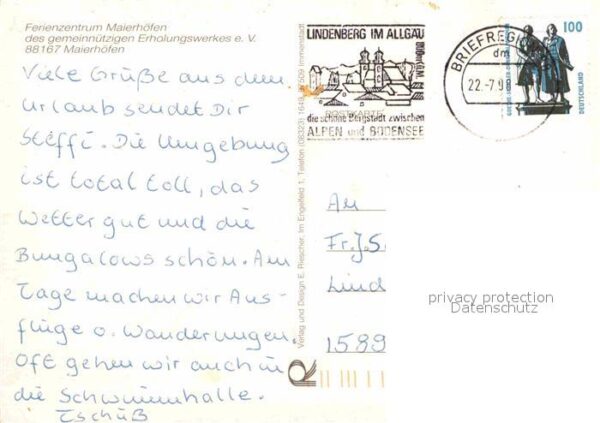 Ferienzentrum Maierhöfen
des gemeinnützigen Erholungswerkes e. V.
88167 Maierhöfen
Viele Grüße aus dem
Urlaub sendet Dir
Steffi. Die Umgebung
ist total toll, das
Wetter gut und die
Bungalows schön. Am
Tage machen wir Aus-
flüge o. Wanderungen.
Oft gehen wir auch in
die Schwimmhalle.
Tschüß
Verlag und Design E. Riescher, Im Engelfeld 1, Telefon (08323) 1649, 87509 Immenstadt
LINDENBERG IM ALLGÄU
POSTKARTE
die schöne Bergstadt zwischen
ALPEN und BODENSEE
BRIEFREG
dm
22.-7.98
100
DEUTSCHLAND
An
Fr. J. S.
Lind
1589
privacy protection
Datenschutz